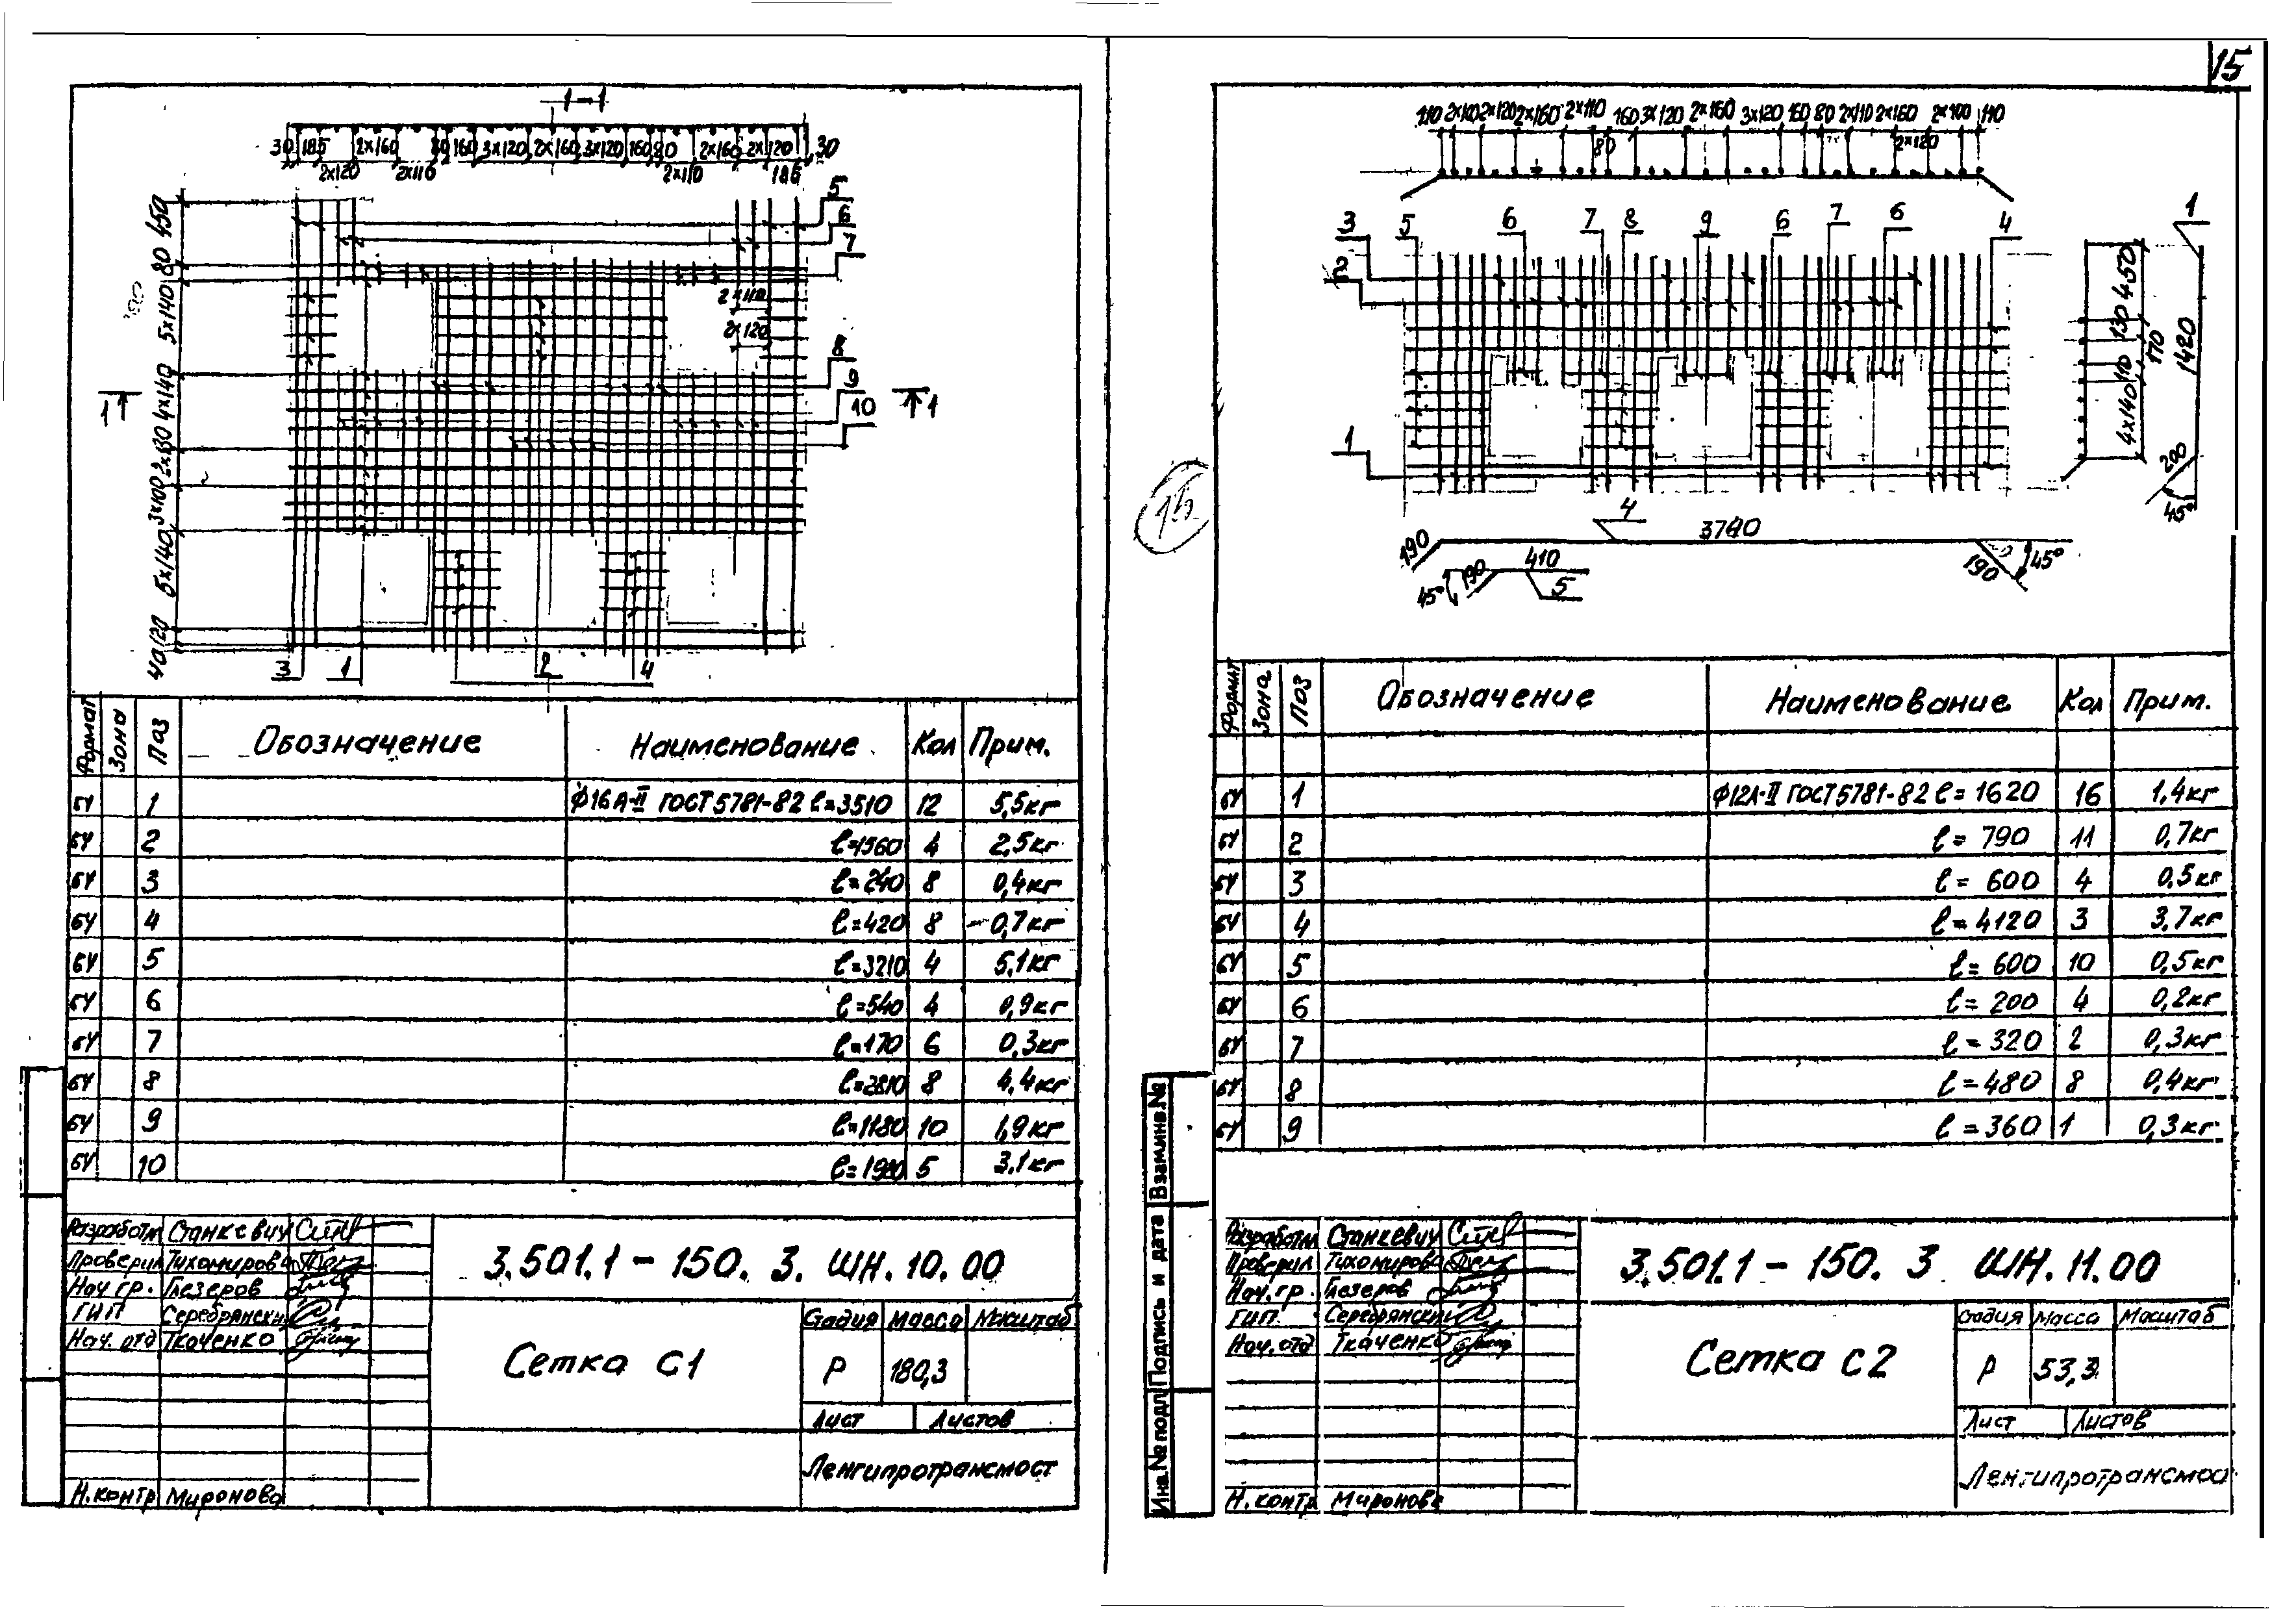 15
1-1
30 185 2x160 80 160 3x120 2x160 3x120 160 80 2x160 2x120 30
2x120 2x110 2x110 185
450
80
5x140
4x140
2x130
3x100
5x140
120
40
5
6
7
2x110
2x120
8
9
10
1 1
3 1 2 4
Формат Зона Поз Обозначение Наименование Кол Прим.
БЧ 1 Ф16А-II ГОСТ 5781-82 ℓ=3510 12 5,5кг
БЧ 2 ℓ=1560 4 2,5кг
БЧ 3 ℓ=240 8 0,4кг
БЧ 4 ℓ=420 8 0,7кг
БЧ 5 ℓ=3210 4 5,1кг
БЧ 6 ℓ=540 4 0,9кг
БЧ 7 ℓ=170 6 0,3кг
БЧ 8 ℓ=2810 8 4,4кг
БЧ 9 ℓ=1180 10 1,9кг
БЧ 10 ℓ=1980 5 3,1кг
Разработал Станкевич
Проверил Тихомирова
Нач гр. Глезеров
ГИП Серебрянский
Нач. отд Ткаченко
Н.контр Миронова
3.501.1-150. 3. ШН.10.00
Сетка С1
Стадия Масса Масштаб
Р 180,3
Лист Листов
Ленгипротрансмост
110 2x100 2x120 2x160 2x110 160 3x120 2x160 3x120 160 80 2x110 2x160 2x100 110
80 2x120
3 5 6 7 8 9 6 7 6 4 1
2
1
450
130
170
110
4x140
1420
200
45°
4
3740
190 190
45°
45° 190 410
5
Формат Зона Поз Обозначение Наименование Кол Прим.
БЧ 1 Ф12А-II ГОСТ 5781-82 ℓ=1620 16 1,4кг
БЧ 2 ℓ=790 11 0,7кг
БЧ 3 ℓ=600 4 0,5кг
БЧ 4 ℓ=4120 3 3,7кг
БЧ 5 ℓ=600 10 0,5кг
БЧ 6 ℓ=200 4 0,2кг
БЧ 7 ℓ=320 2 0,3кг
БЧ 8 ℓ=480 8 0,4кг
БЧ 9 ℓ=360 1 0,3кг
Взам.инв.№
Подпись и дата
Инв.№ подл
Разработал Станкевич
Проверил Тихомирова
Нач.гр. Глезеров
ГИП Серебрянский
Нач.отд Ткаченко
Н.контр Миронова
3.501.1-150. 3 ШН.11.00
Сетка С2
Стадия Масса Масштаб
Р 53,3
Лист Листов
Ленгипротрансмос